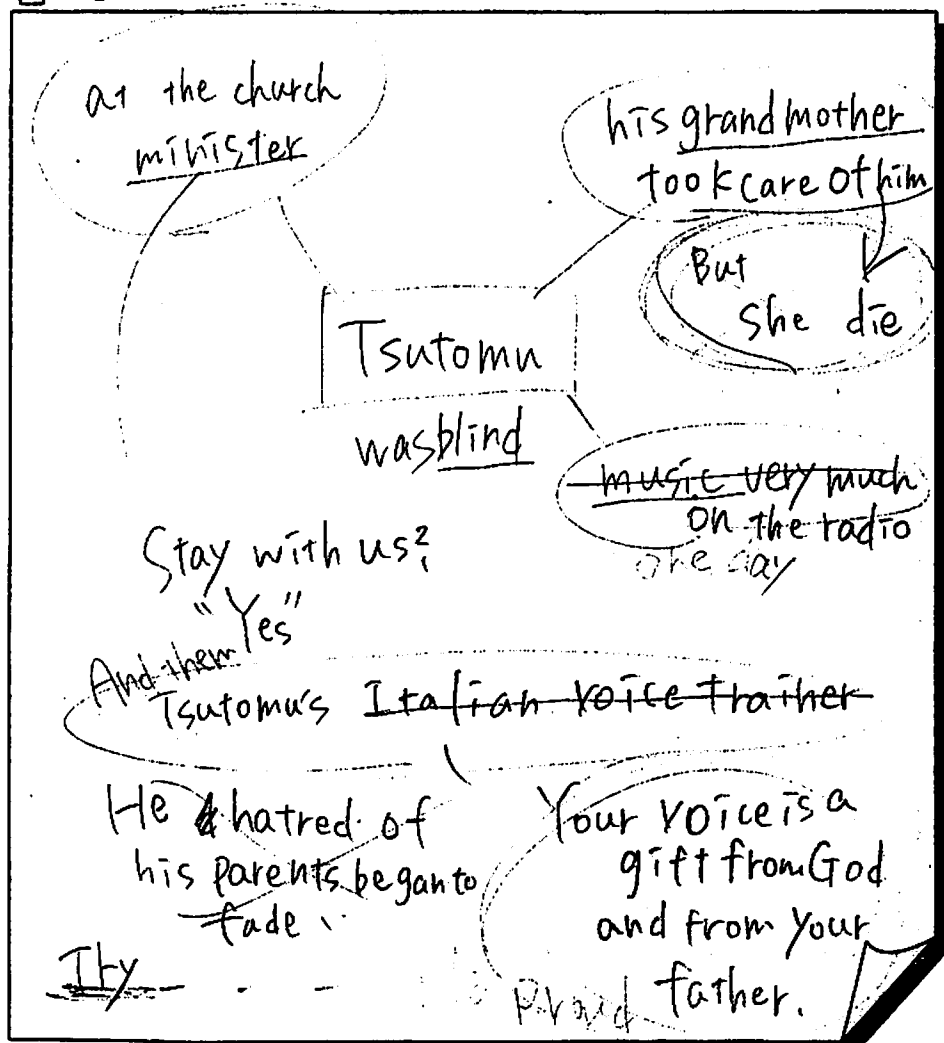 at the church
minister
his grandmother
took care of him
But
she die
Tsutomu
was blind
music very much
on the radio
one day
Stay with us?
"Yes"
And them
Tsutomu's Italian voice trainer
He hatred of
his parents began to
fade
Your voice is a
gift from God
and from your
father.
Try
Proud